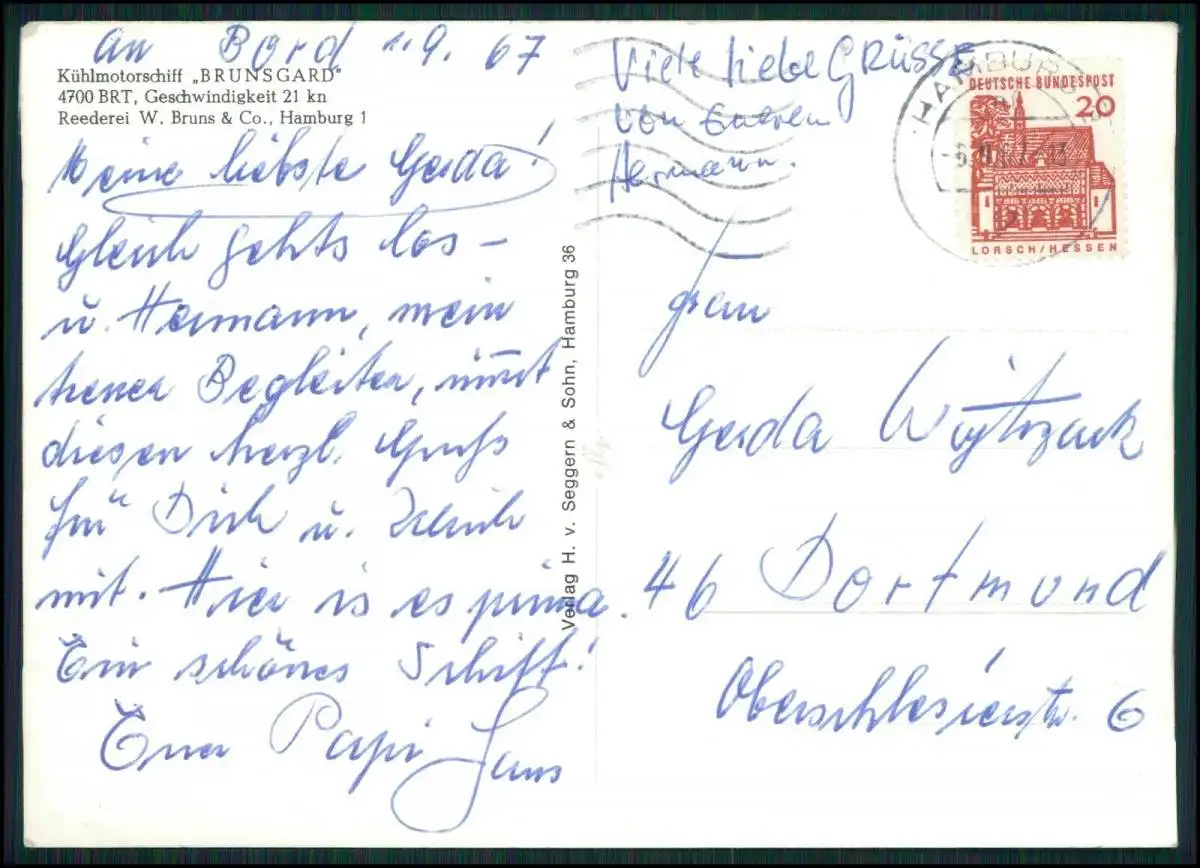 An Bord 1.9.67
Kühlmotorschiff „BRUNSGARD"
4700 BRT, Geschwindigkeit 21 kn
Reederei W. Bruns & Co., Hamburg 1
Meine liebste Gerda!
Gleich gehts los -
u. Hermann, mein
treuer Begleiter, nimmt
diesen herzl. Gruß
für Dich u. Ulrich
mit. Hier is es prima.
Ein schönes Schiff!
Euer Papi Hans
Verlag H. v. Seggern & Sohn, Hamburg 36
Viele liebe GRÜSSE
von Eurem
Hermann.
HAMBURG
DEUTSCHE BUNDESPOST
20
LORSCH/HESSEN
Frau
Gerda
46 Dortmund
Oberschlesierstr. 6